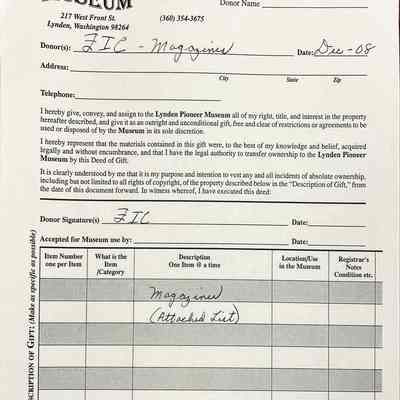 MUSEUM
Donor Name
217 West Front St.
Lynden, Washington 98264
(360) 354-3675
Donor(s): FIC - Magazines Date: Dec-08
Address:
City State Zip
Telephone:
I hereby give, convey, and assign to the Lynden Pioneer Museum all of my right, title, and interest in the property
hereafter described, and give it as an outright and unconditional gift, free and clear of restrictions or agreements to be
used or disposed of by the Museum in its sole discretion.
I hereby represent that the materials contained in this gift were, to the best of my knowledge and belief, acquired
legally and without encumbrance, and that I have the legal authority to transfer ownership to the Lynden Pioneer
Museum by this Deed of Gift.
It is clearly understood by me that it is my purpose and intention to vest any and all incidents of absolute ownership,
including but not limited to all rights of copyright, of the property described below in the "Description of Gift," from
the date of this document forward. In witness whereof, I have executed this deed:
Donor Signature(s) FIC Date:
Accepted for Museum use by: Date:
Item Number
one per Item
What is the
Item
/Category
Description
One Item @ a time
Location/Use
in the Museum
Registrar's
Notes
Condition etc.
Magazines
(Attached List)
SCRIPTION OF GIFT: (Make as specific as possible)